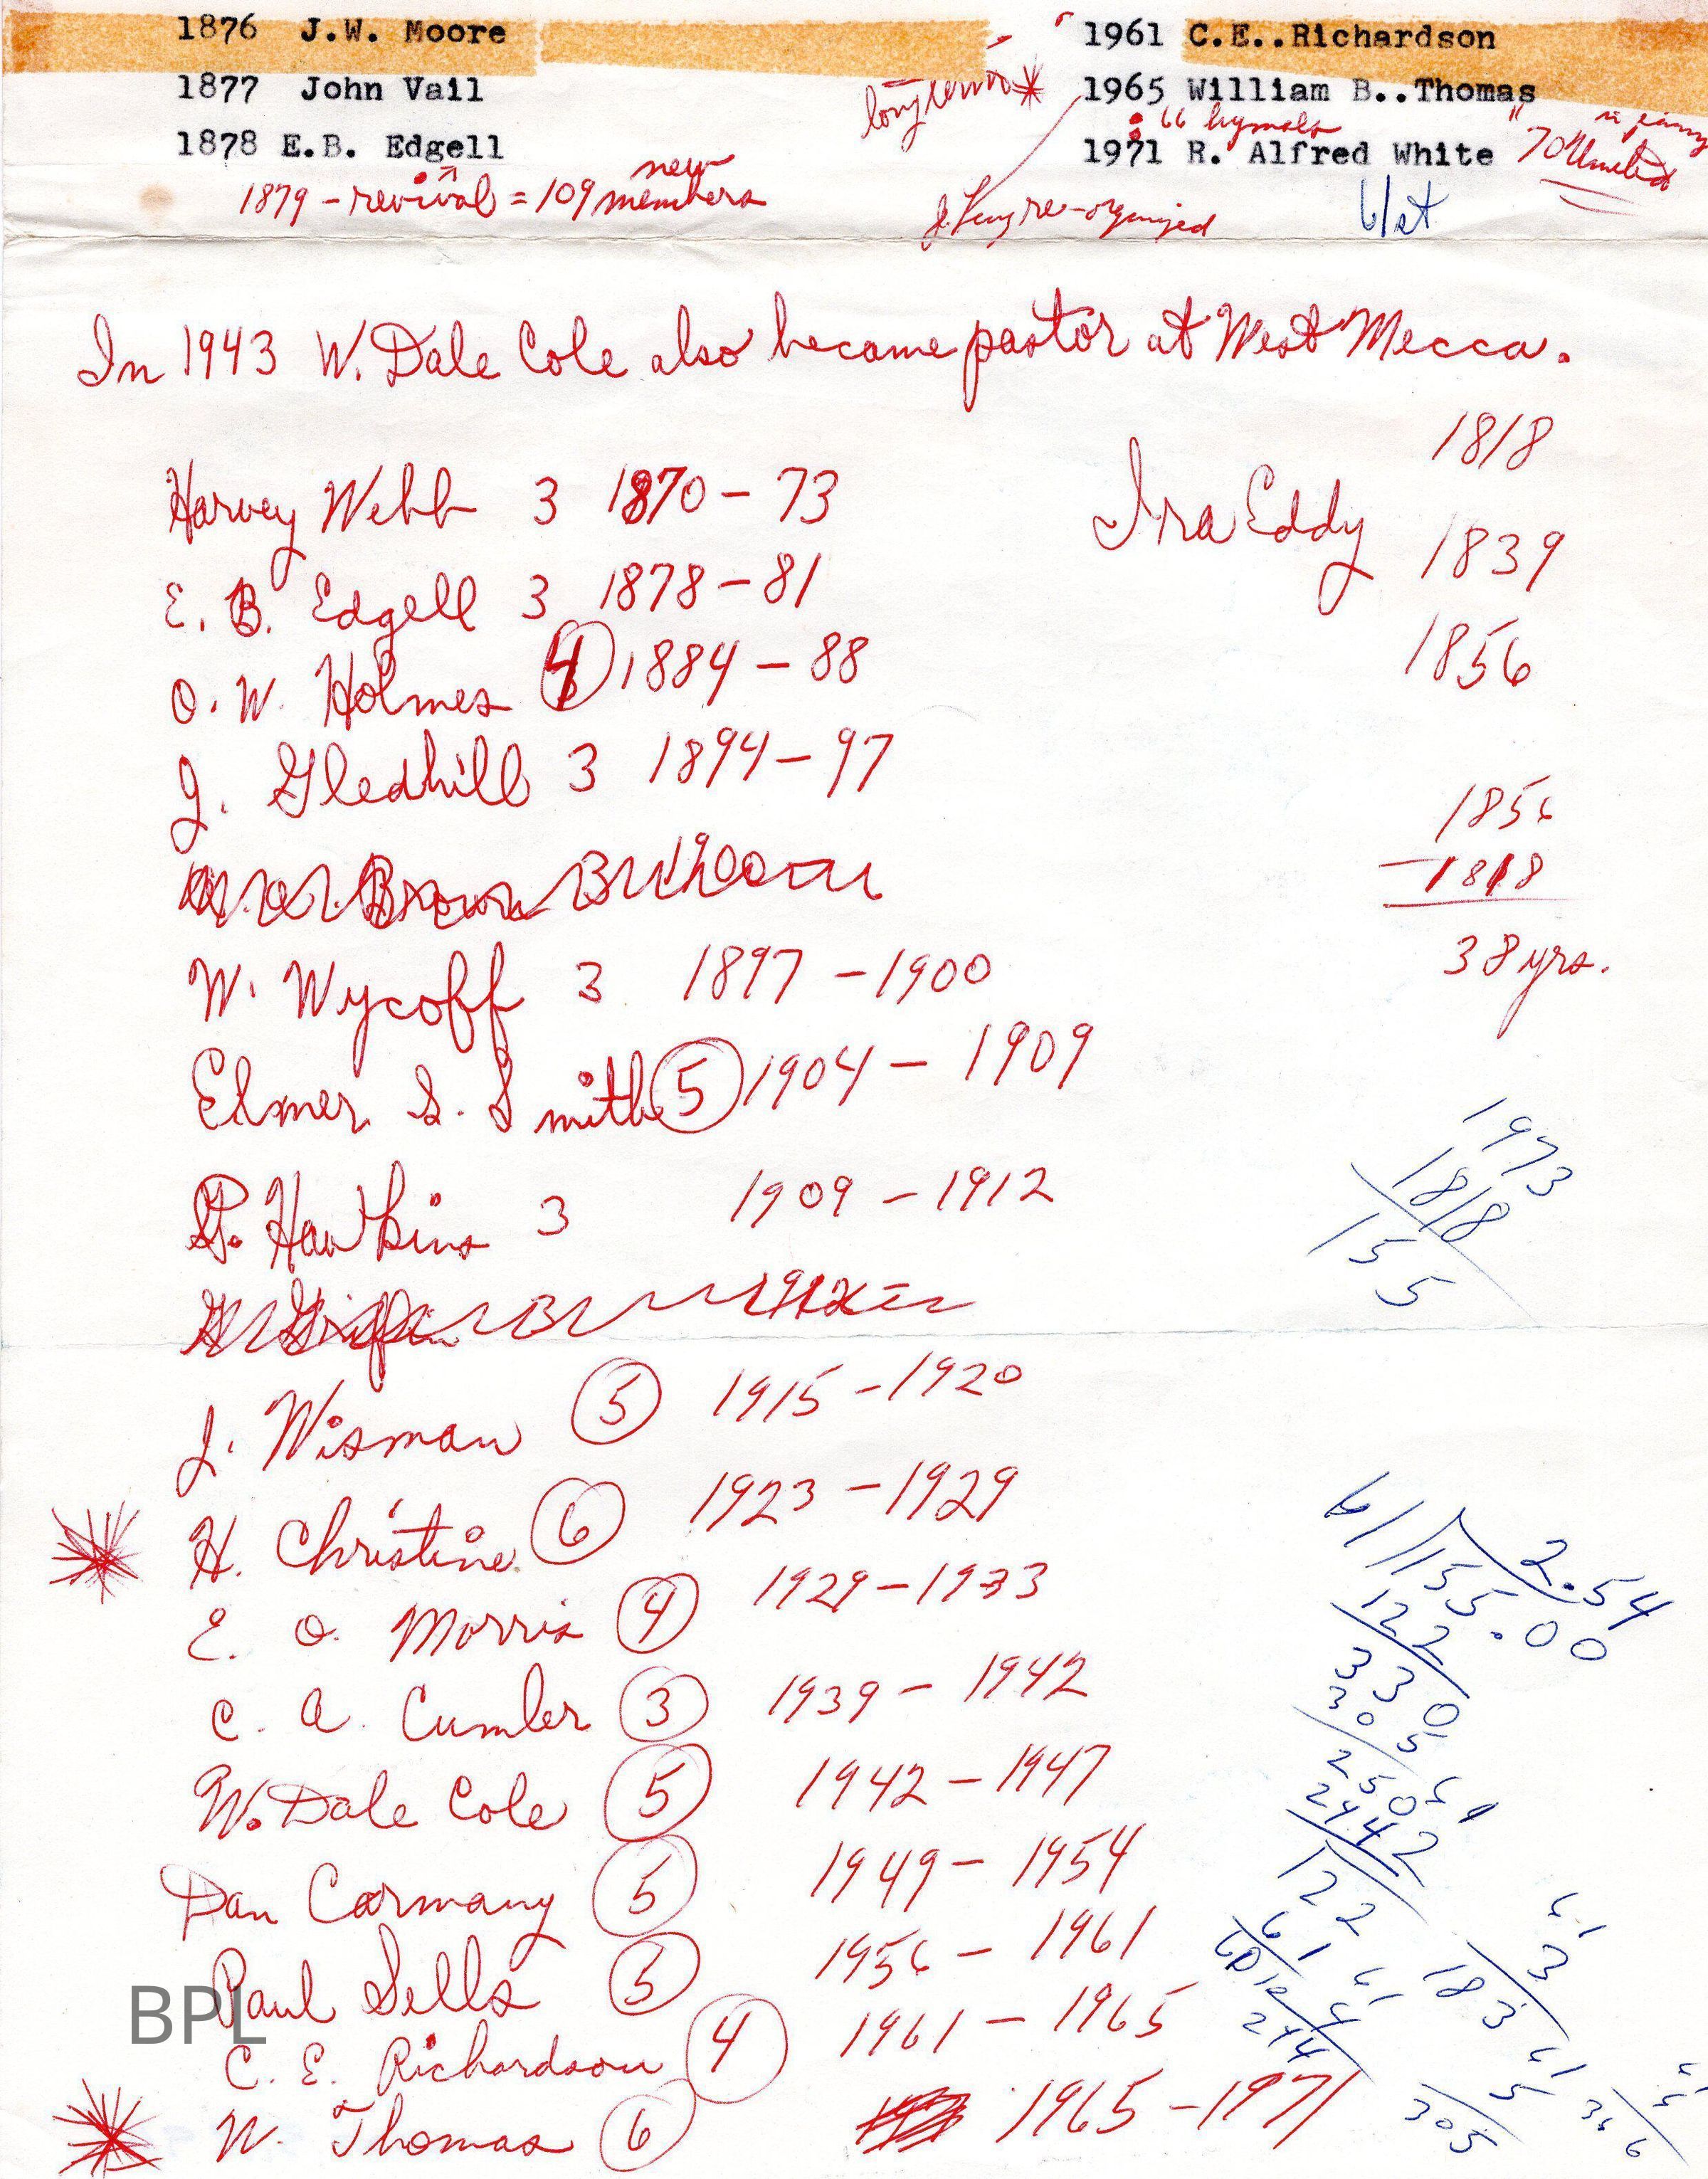 1876 J.W. Moore
1877 John Vail
1878 E.B. Edgell
1879 - revival = 109 new members
1961 C.E..Richardson
long term * 1965 William B..Thomas
" hymnals "
1971 R. Alfred White 70 United
re-organized 61st
In 1943 W. Dale Cole also became pastor at West Mecca.
Harvey Webb 3 1870 - 73
E. B. Edgell 3 1878 - 81
O. W. Holmes 4 1884 - 88
J. Gledhill 3 1894 - 97
W. Wycoff 3 1897 - 1900
Elmer S. Smith 5 1904 - 1909
P. Hawkins 3 1909 - 1912
J. Wisman 5 1915 - 1920
H. Christine 6 1923 - 1929
E. O. Morris 4 1929 - 1933
C. A. Cumler 3 1939 - 1942
W. Dale Cole 5 1942 - 1947
Dan Carmany 5 1949 - 1954
Paul Sells 5 1956 - 1961
C. E. Richardson 4 1961 - 1965
W. Thomas 6 1965 - 1971
1818
Ira Eddy 1839
1856
1856
- 1818
38 yrs.
1973
1818
155
2.54
61/155.00
122
330
305
250
244
61
3
183
61
4
244
61
5
305
366
BPL